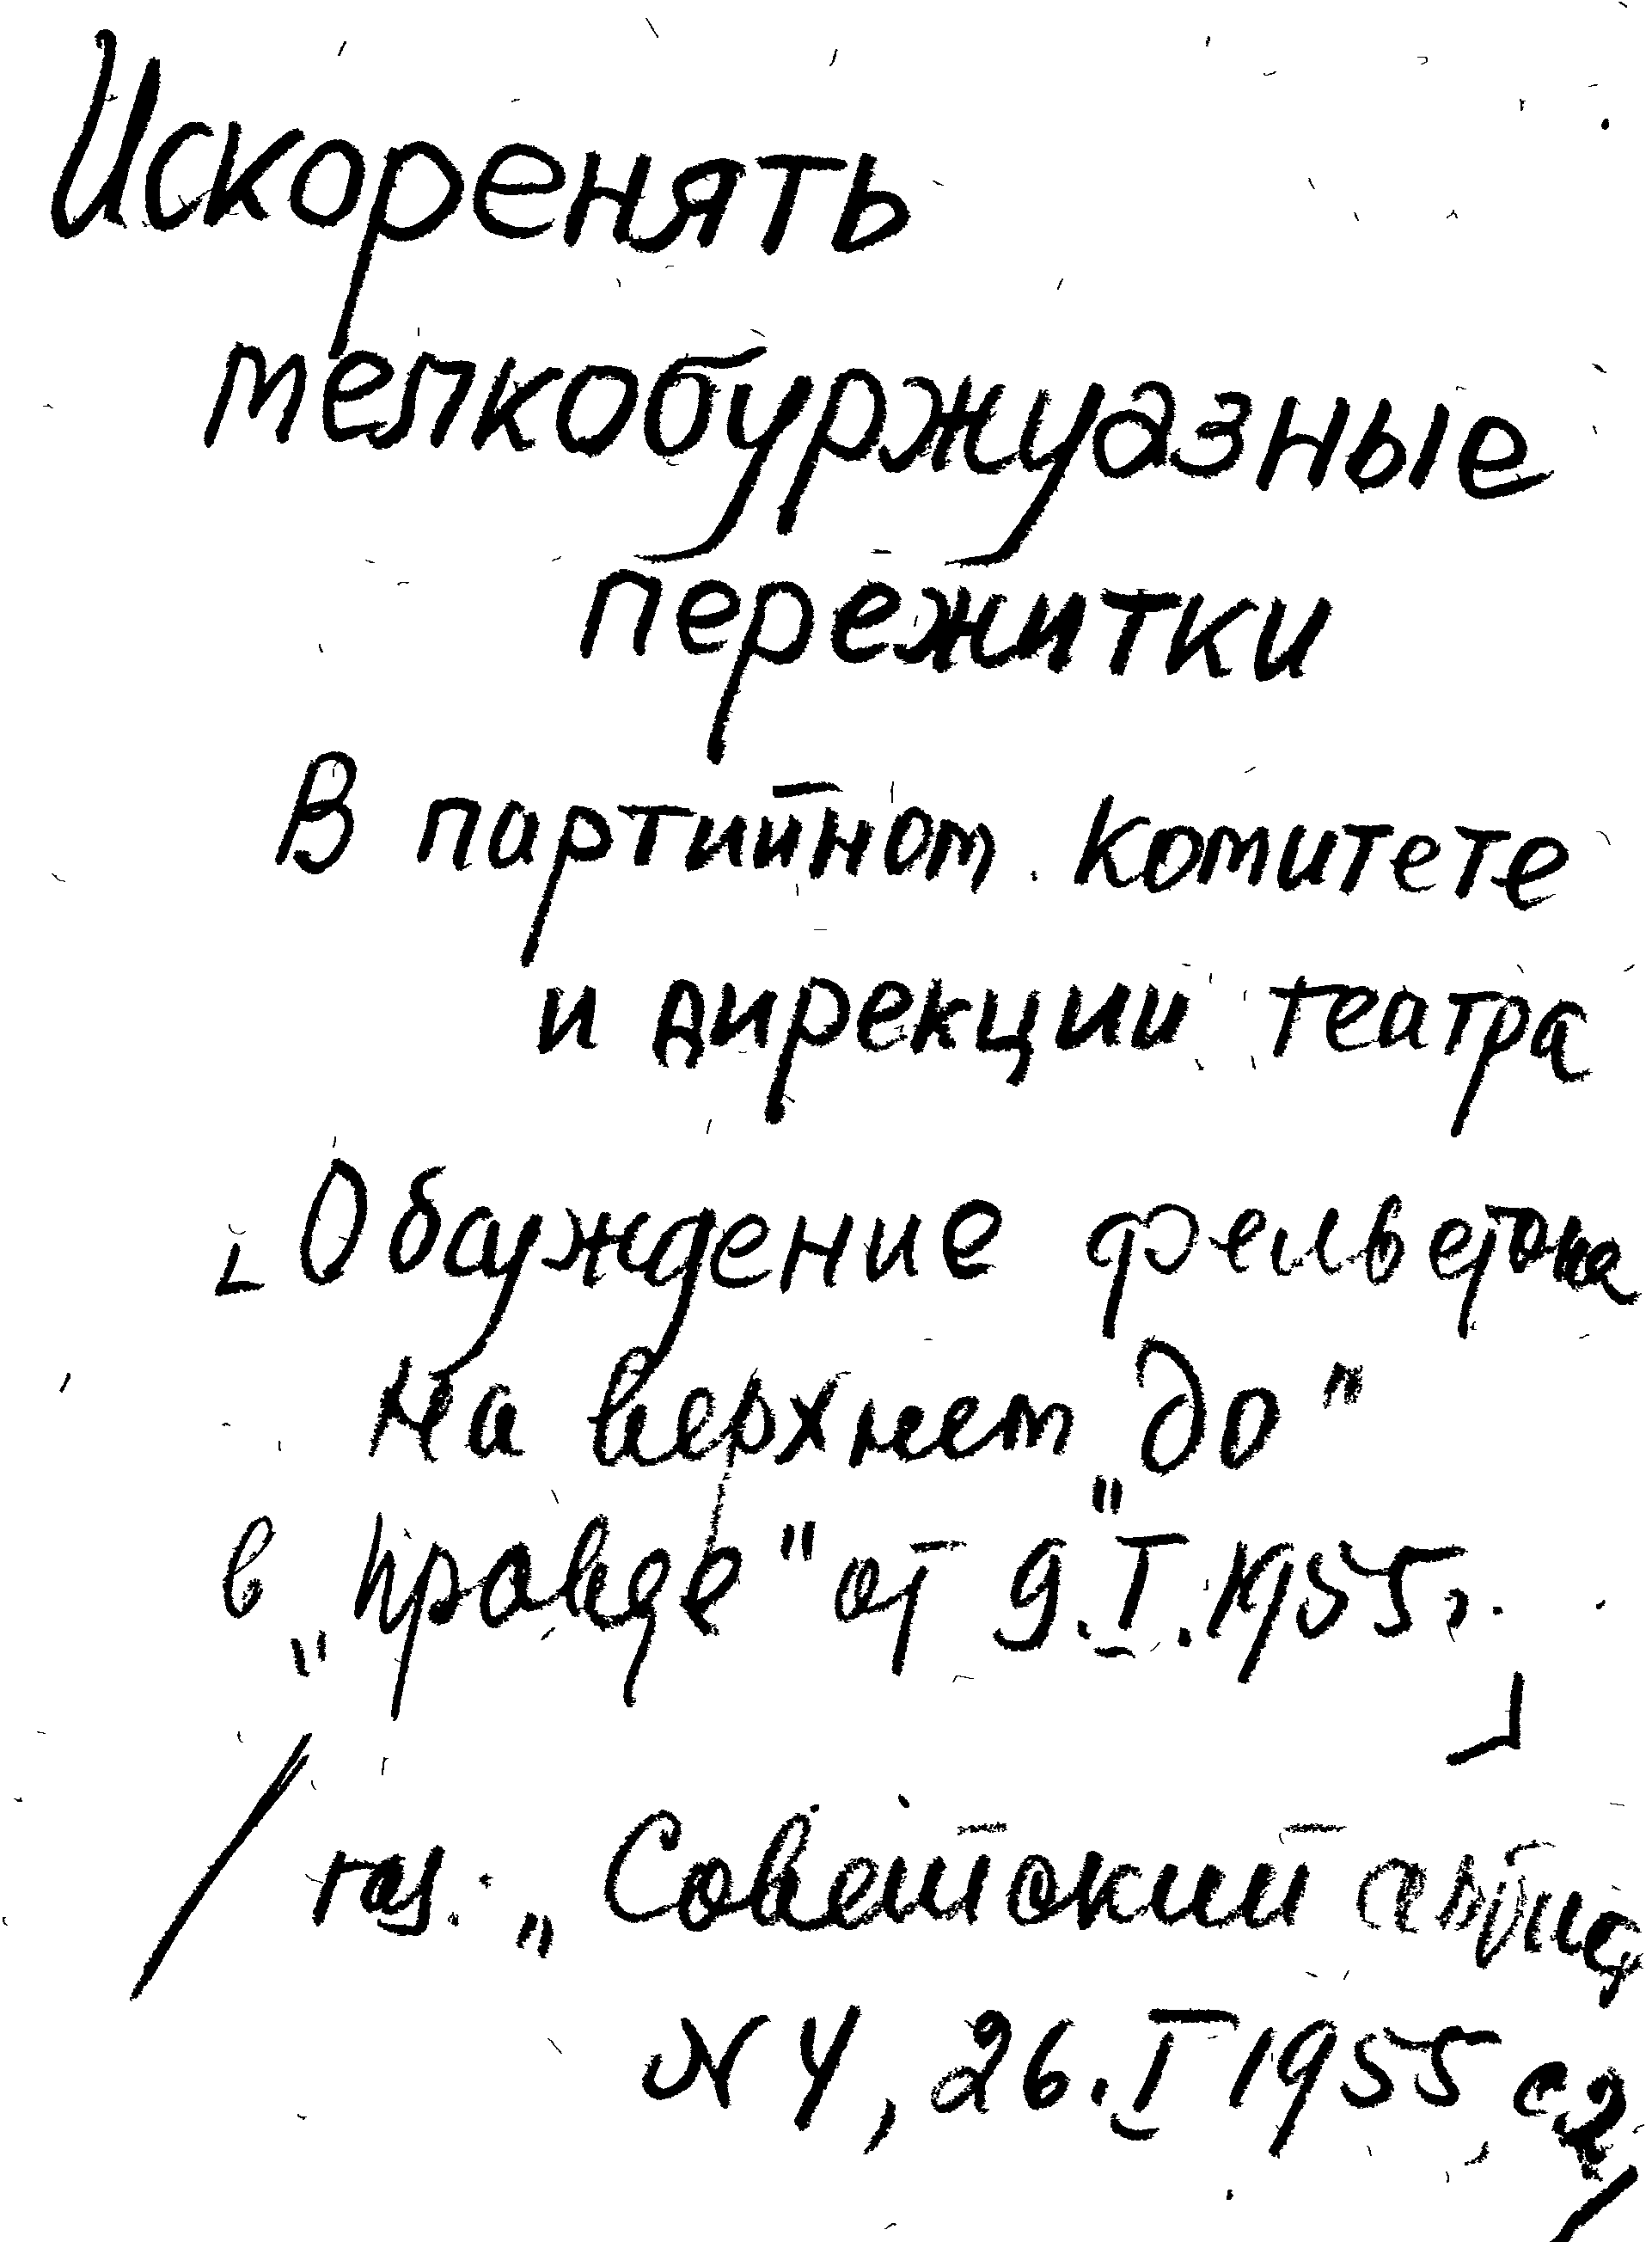 Искоренять
мелкобуржуазные
пережитки
В партийном комитете
и дирекции театра
[Обсуждение фельетона
на верхнем „до"
в „Правде" от 9.I.1955г.]
/газ. „Советский артист
N 4, 26.I 1955, с.2/